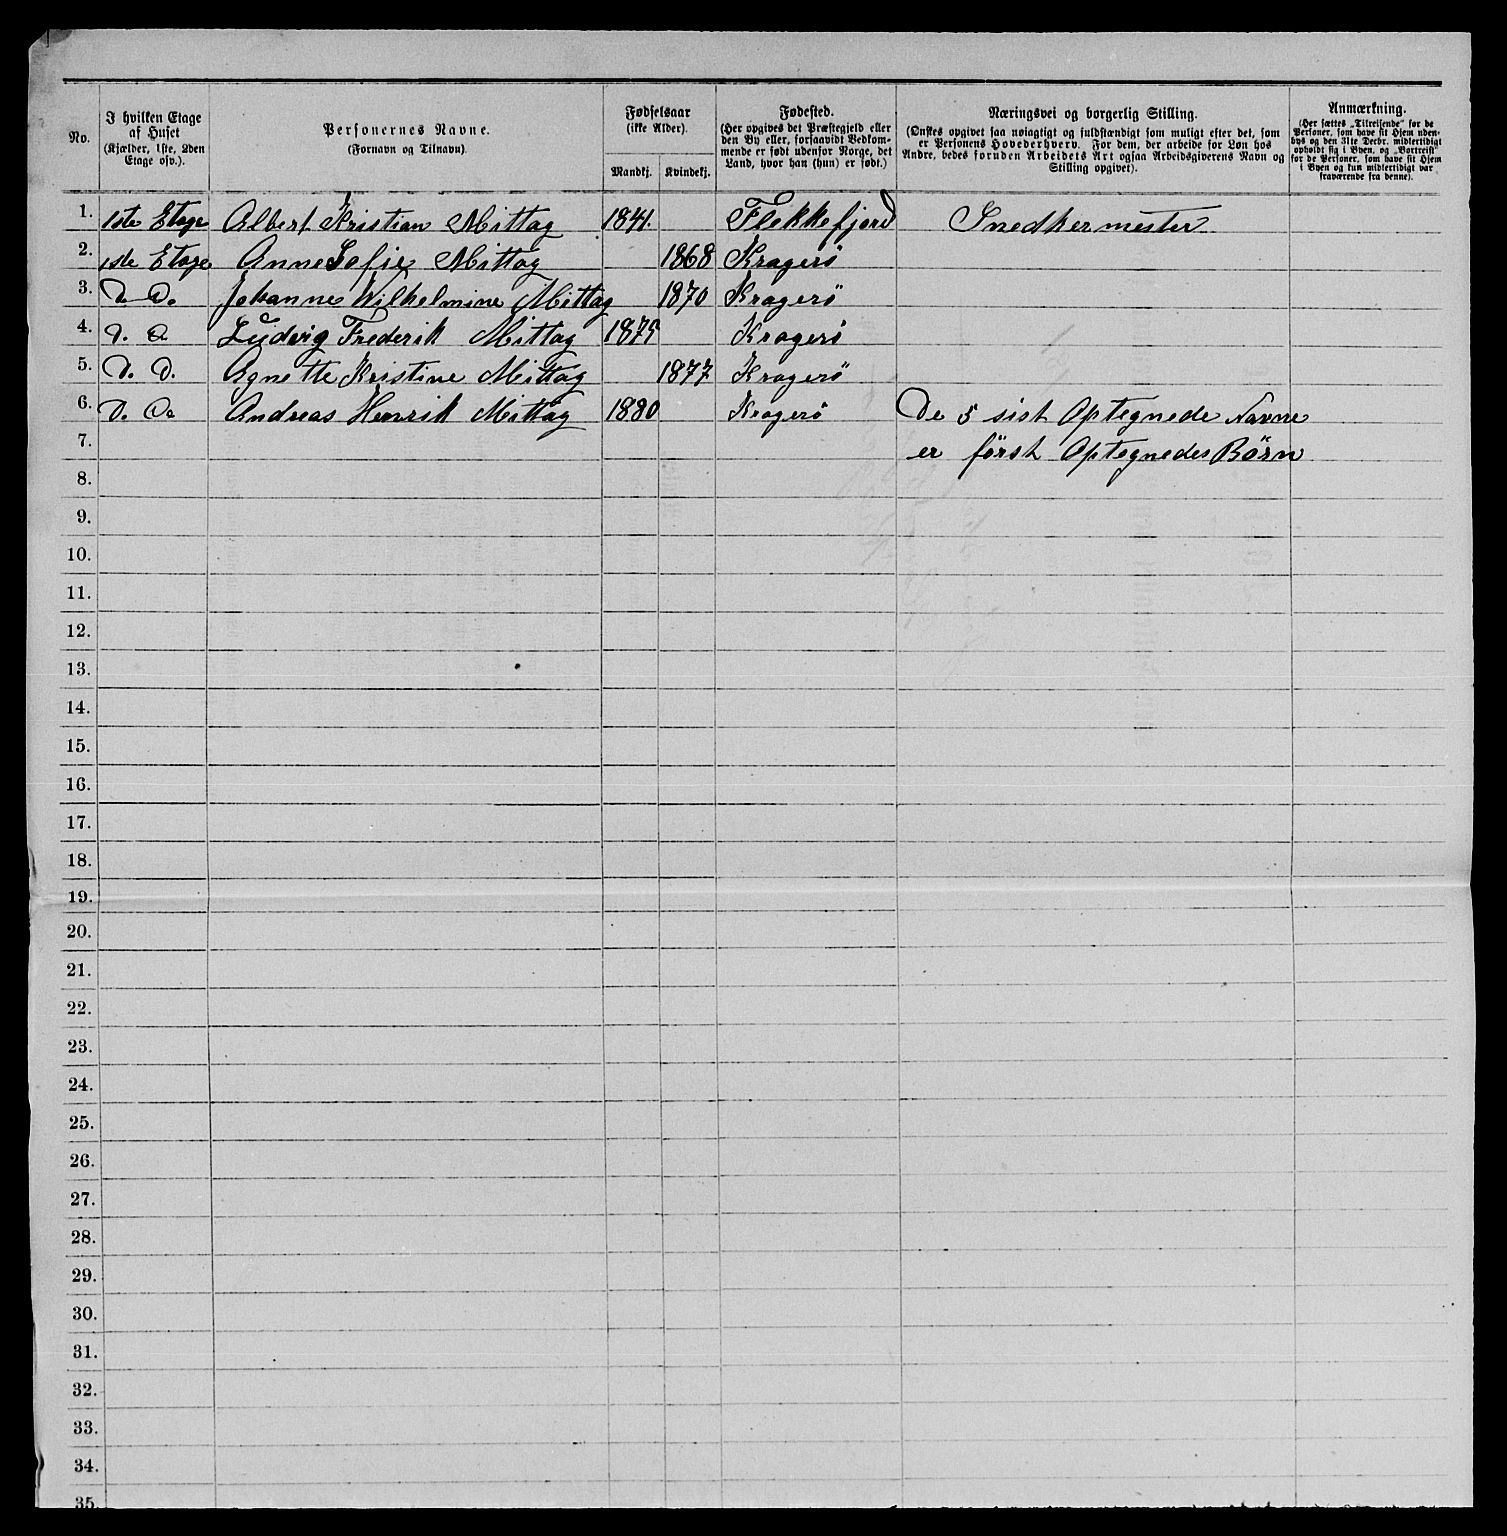 No.
I hvilken Etage
af Huset
(Kjælder, 1ste, 2den
Etage osv.).
Personernes Navne.
(Fornavn og Tilnavn).
Fødselsaar
(ikke Alder).
Mandkj. Kvindekj.
Fødested.
(Her opgives det Præstegjeld eller
den By eller, forsaavidt Vedkom-
mende er født udenfor Norge, det
Land, hvor han (hun) er født.)
Næringsvei og borgerlig Stilling.
(Ønskes opgivet saa nøiagtigt og fuldstændigt som muligt efter det, som
er Personens Hovederhverv. For dem, der arbeide for Løn hos
Andre, bedes foruden Arbeidets Art ogsaa Arbeidsgiverens Navn og
Stilling opgivet).
Anmærkning.
(Her sættes „Tilreisende" for de
Personer, som have sit Hjem uden-
bys og den 31te Decbr. midlertidigt
opholdt sig i Byen, og „Bortreist"
for de Personer, som have sit Hjem
i Byen og kun midlertidigt var
fraværende fra denne).
1. 1ste Etage Albert Kristian Mittag 1841. Flekkefjord Snedkermester
2. 1ste Etage Anne Sofie Mittag 1868 Kragerö
3. D. D. Johanne Wilhelmine Mittag 1870 Kragerö
4. D. D Ludvig Frederik Mittag 1875 Kragerö
5. D. D. Agnette Kristine Mittag 1877 Kragerö
6. D. Do Andreas Henrik Mittag 1880 Kragerö De 5 sist Optegnede Navne
7. er först Optegnedes Börn
8.
9.
10.
11.
12.
13.
14.
15.
16.
17.
18.
19.
20.
21.
22.
23.
24.
25.
26.
27.
28.
29.
30.
31.
32.
33.
34.
35.